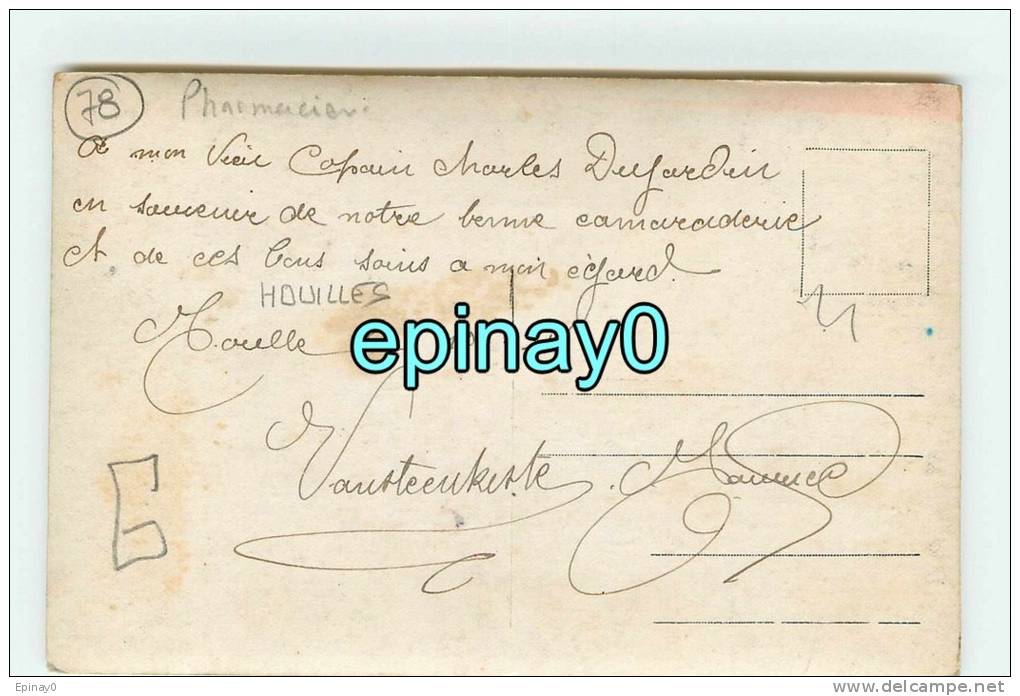 78 Pharmacien
A mon Vieil Copain Charles Dujardin
en souvenir de notre bonne camaraderie
et de ces bons soins a mon égard
HOUILLES
epinay0
Vansteenkiste Maurice
E
Epinay0 www.delcampe.net